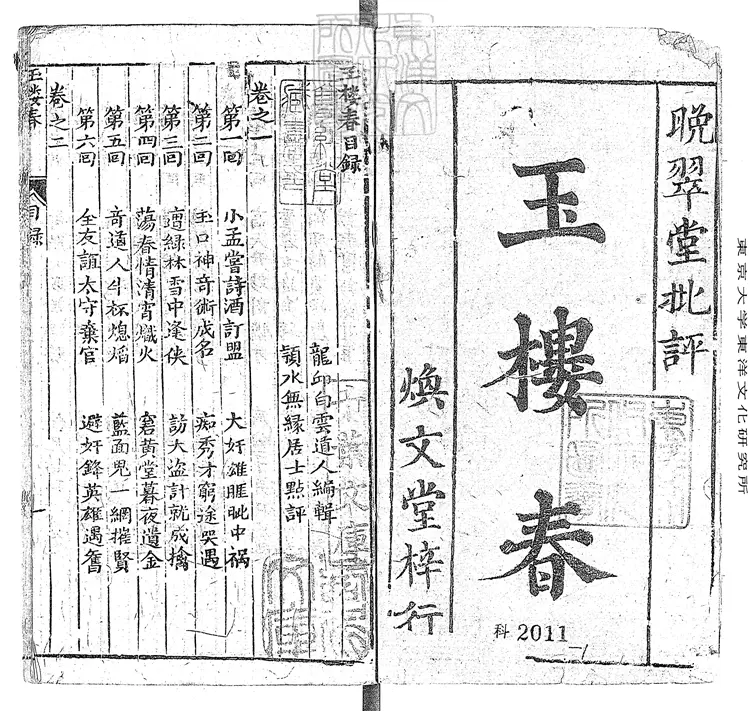 晚翠堂批評
玉樓春
煥文堂梓行
科2011
東京大学東洋文化研究所
玉楼春目録
龍邱白雲道人編輯
頴水無縁居士點評
卷之一
第一回 小孟嘗詩酒訂盟 大奸雄睚眦中禍
第二回 玉口神奇術成名 痴秀才窮途哭遇
第三回 遭綠林雪中逢俠 訪大盗計就成擒
第四回 蕩春情清宵熾火 窘黄堂暮夜遺金
第五回 奇道人斗杯熄焰 藍面鬼一網摧賢
第六回 全友誼太守棄官 避奸鋒英雄遇舊
卷之二
玉楼春
目録